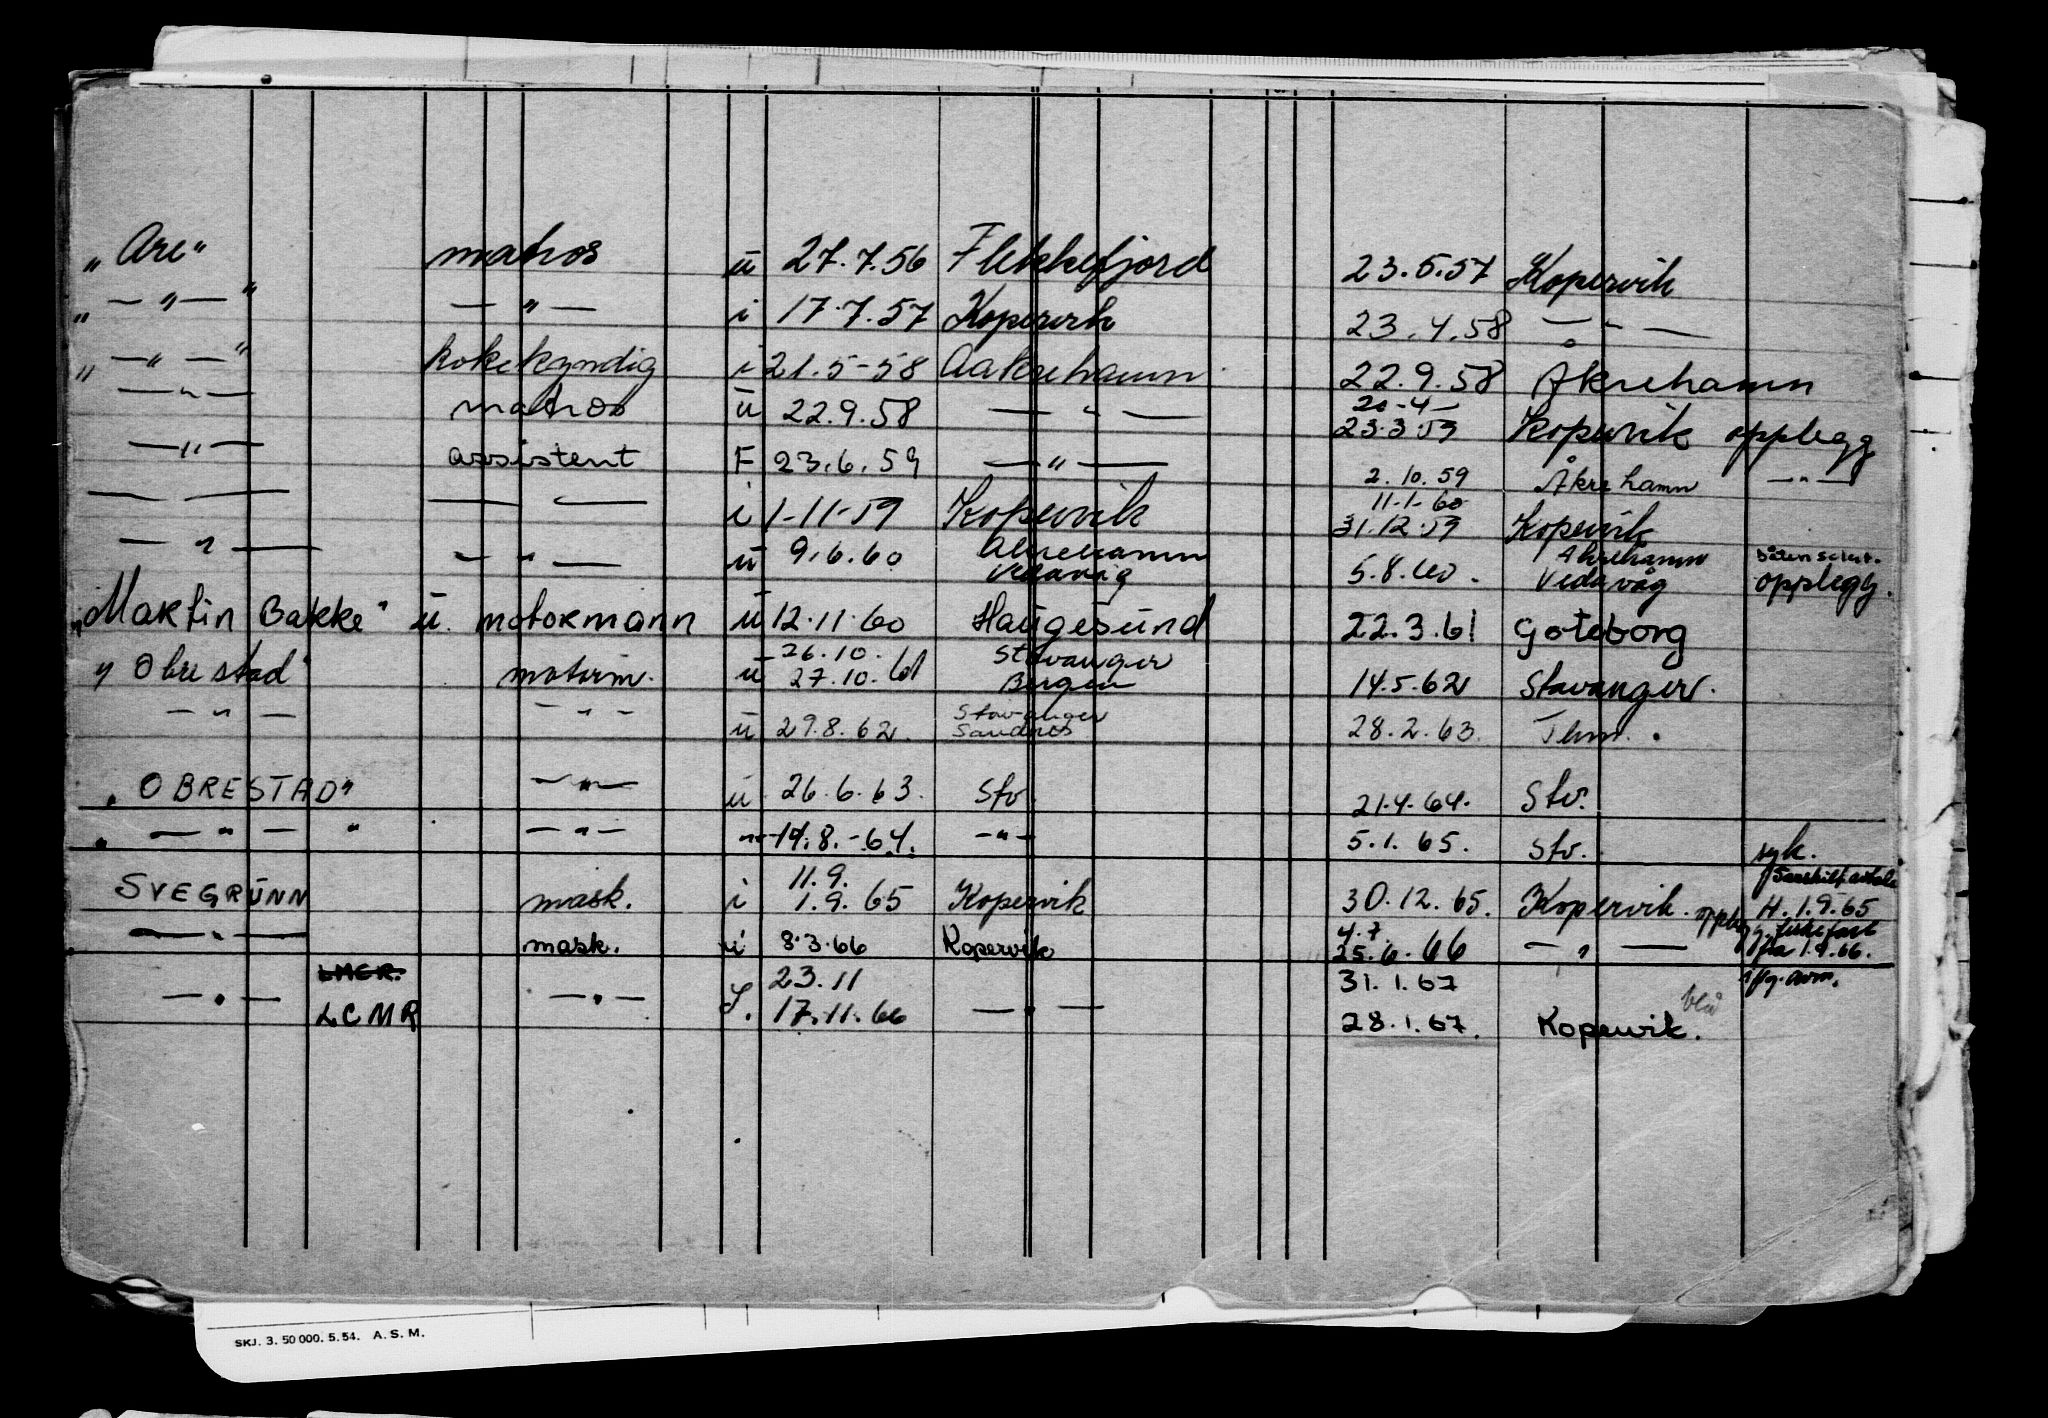 „Are“ matros ü 27.7.56 Flekkefjord 23.5.57 Kopervik
„ — „ — “ — „ — i 17.7.57 Kopervik 23.4.58 — „ —
„ — „ — “ kokekyndig i 21.5-58 Aakrehamn 22.9.58 Åkrehamn
— „ — matros ü 22.9.58 — „ — 20-4- 23.3.59 Kopervik opplegg
— „ — assistent F 23.6.59 — „ — 2.10.59 Åkrehamn — „ —
— — — — i 1-11-59 Kopervik 11-1-60 31.12.59 Kopervik
— „ — — „ — ü 9.6.60 Akrehamn Vedavåg 5.8.60. Akrehamn Vedavåg opplegg.
„Martin Bakke“ ü. motormann ü 12.11.60 Haugesund 22.3.61 Göteborg
„ Obrestad“ motorm. ü 26.10. 27.10.61 Stavanger Bergen 14.5.62 Stavanger.
— „ — — „ — ü 29.8.62. Stavanger Sandnes 28.2.63. Thm.
„ OBRESTAD“ — „ — ü 26.6.63. Stv. 21.4.64. Stv.
„ — „ — “ — „ — 14.8.-64. — „ — 5.1.65. Stv. syk.
SVEGRUNN mask. i 11.9. 1.9.65 Kopervik 30.12.65. Kopervik. opplegg H. 1.9.65
— „ — mask. i 8.3.66 Kopervik 4.7. 25.6.66 — „ — fra 1.9.66.
— „ — LMCR. LCMR — „ — S. 23.11 17.11.66 — „ — 31.1.67 28.1.67. Kopervik. blå
SKJ. 3. 50 000. 5. 54. A. S. M.